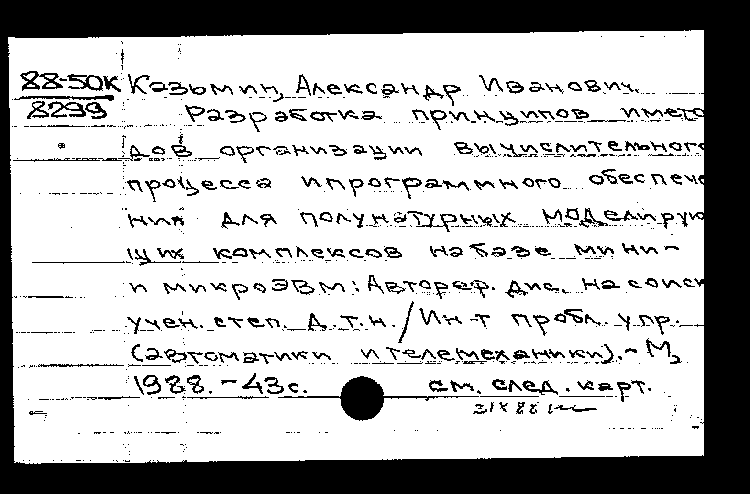 88-50К Казьмин, Александр Иванович.
8299 Разработка принципов и мето
дов организации вычислительного
процесса и программного обеспече
ния для полунатурных моделирую
щих комплексов на базе мини-
и микроЭВМ: Автореф. дис. на соиск
учен. степ. д.т.н. / Ин-т пробл. упр.
(автоматики и телемеханики). - М.,
1988. - 43 с. см. след. карт.